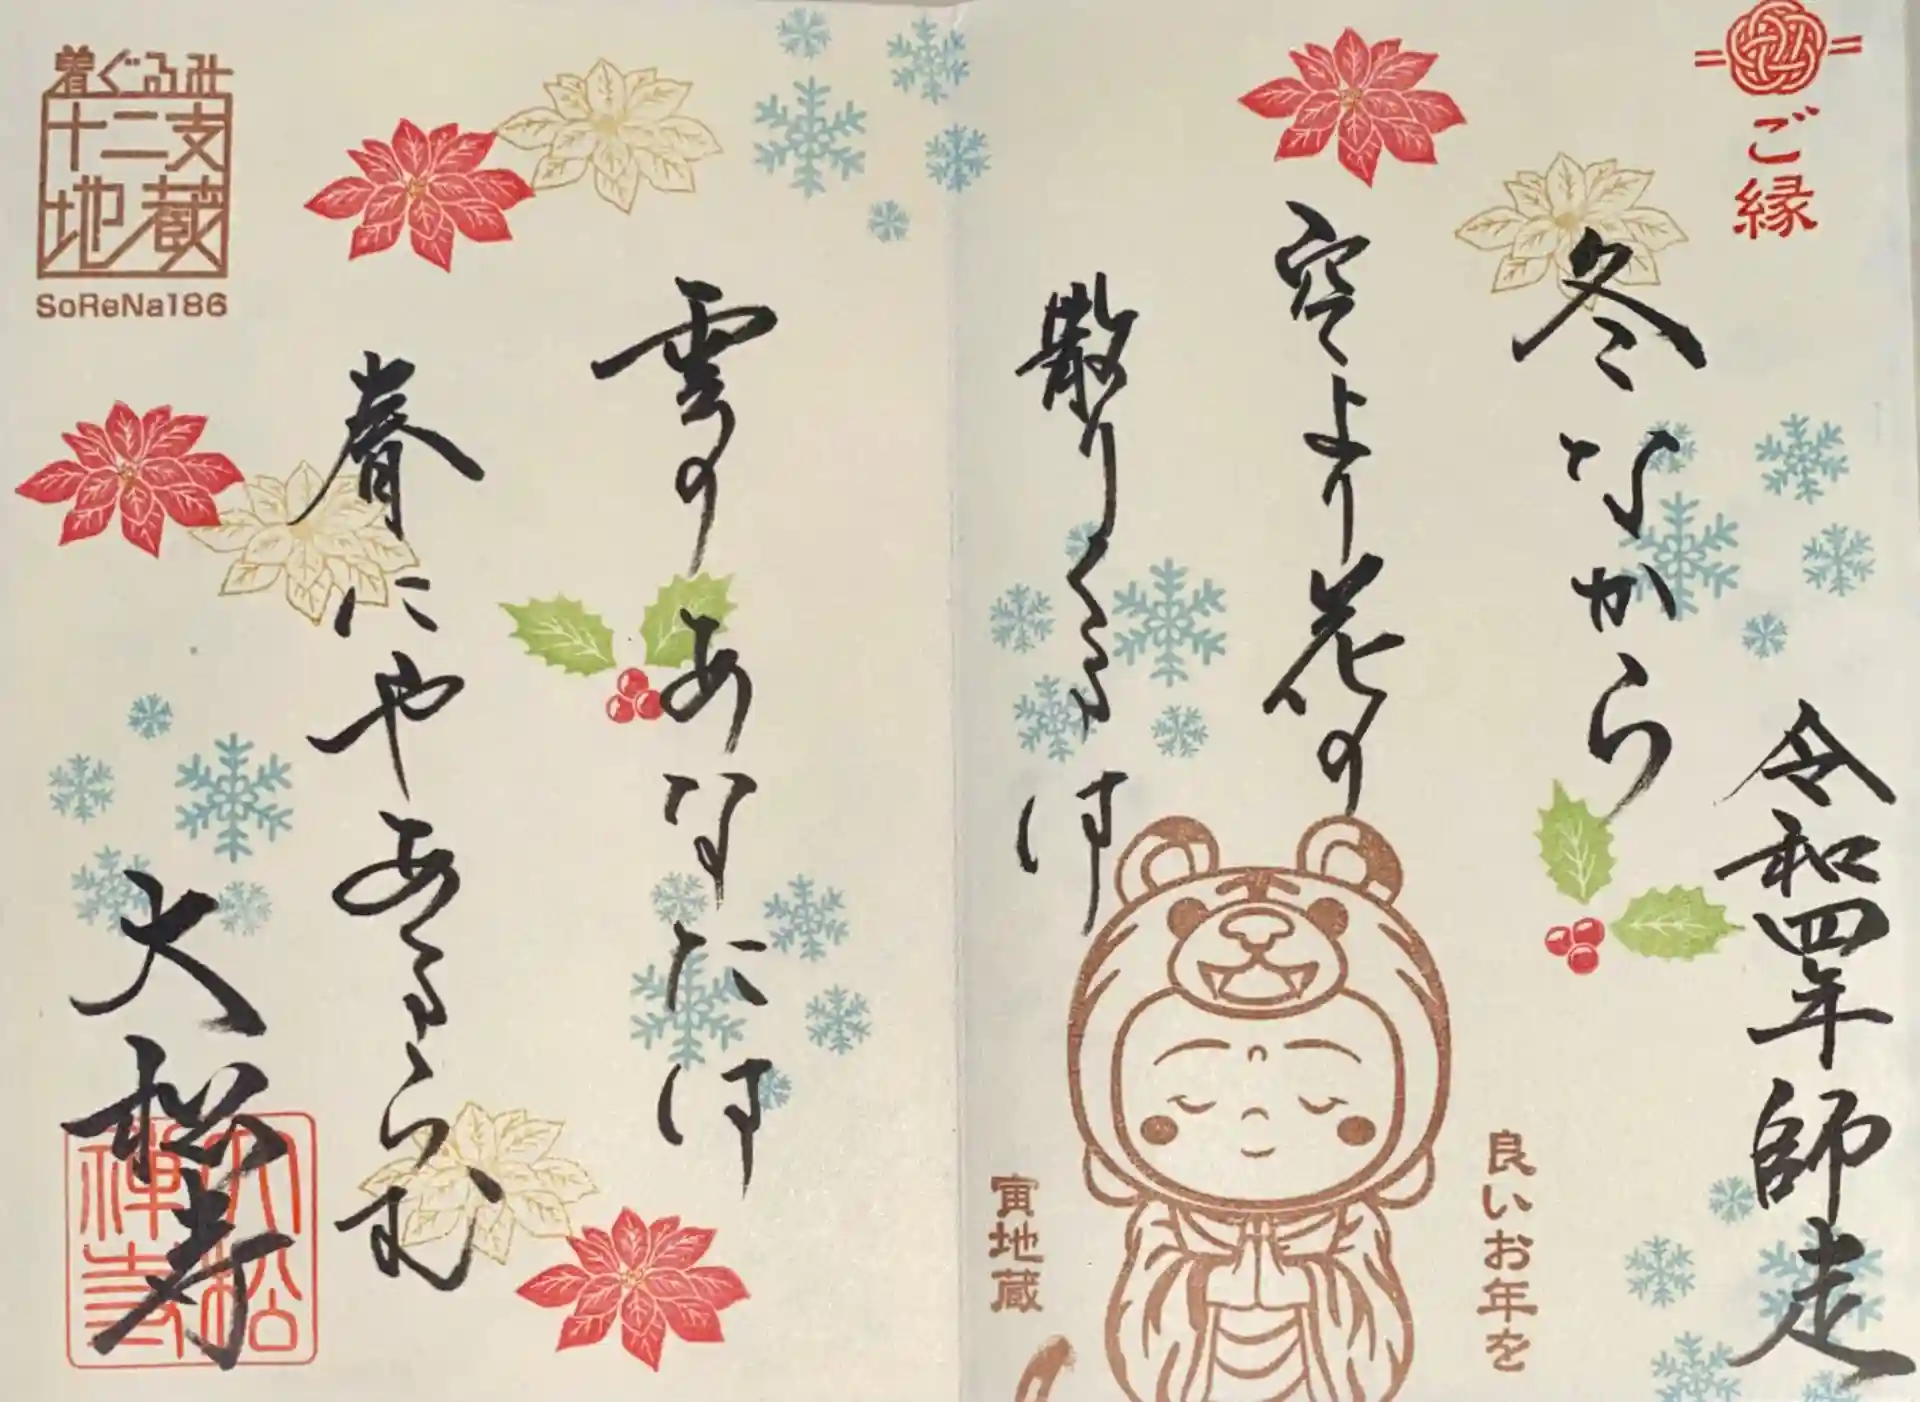 ご縁
令和四年師走
冬なから
空より花の
散りくるは
良いお年を
寅地蔵
雲のあなたは
春にやあるらむ
大松寺
大松禅寺
着ぐるみ
十二支
地蔵
SoReNa186